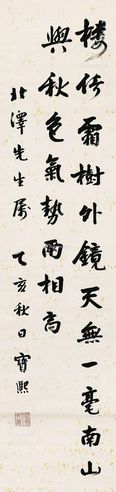 楼倚霜樹外鏡天無一毫南山
與秋色氣勢兩相高
北澤先生属
乙亥秋日寶熙